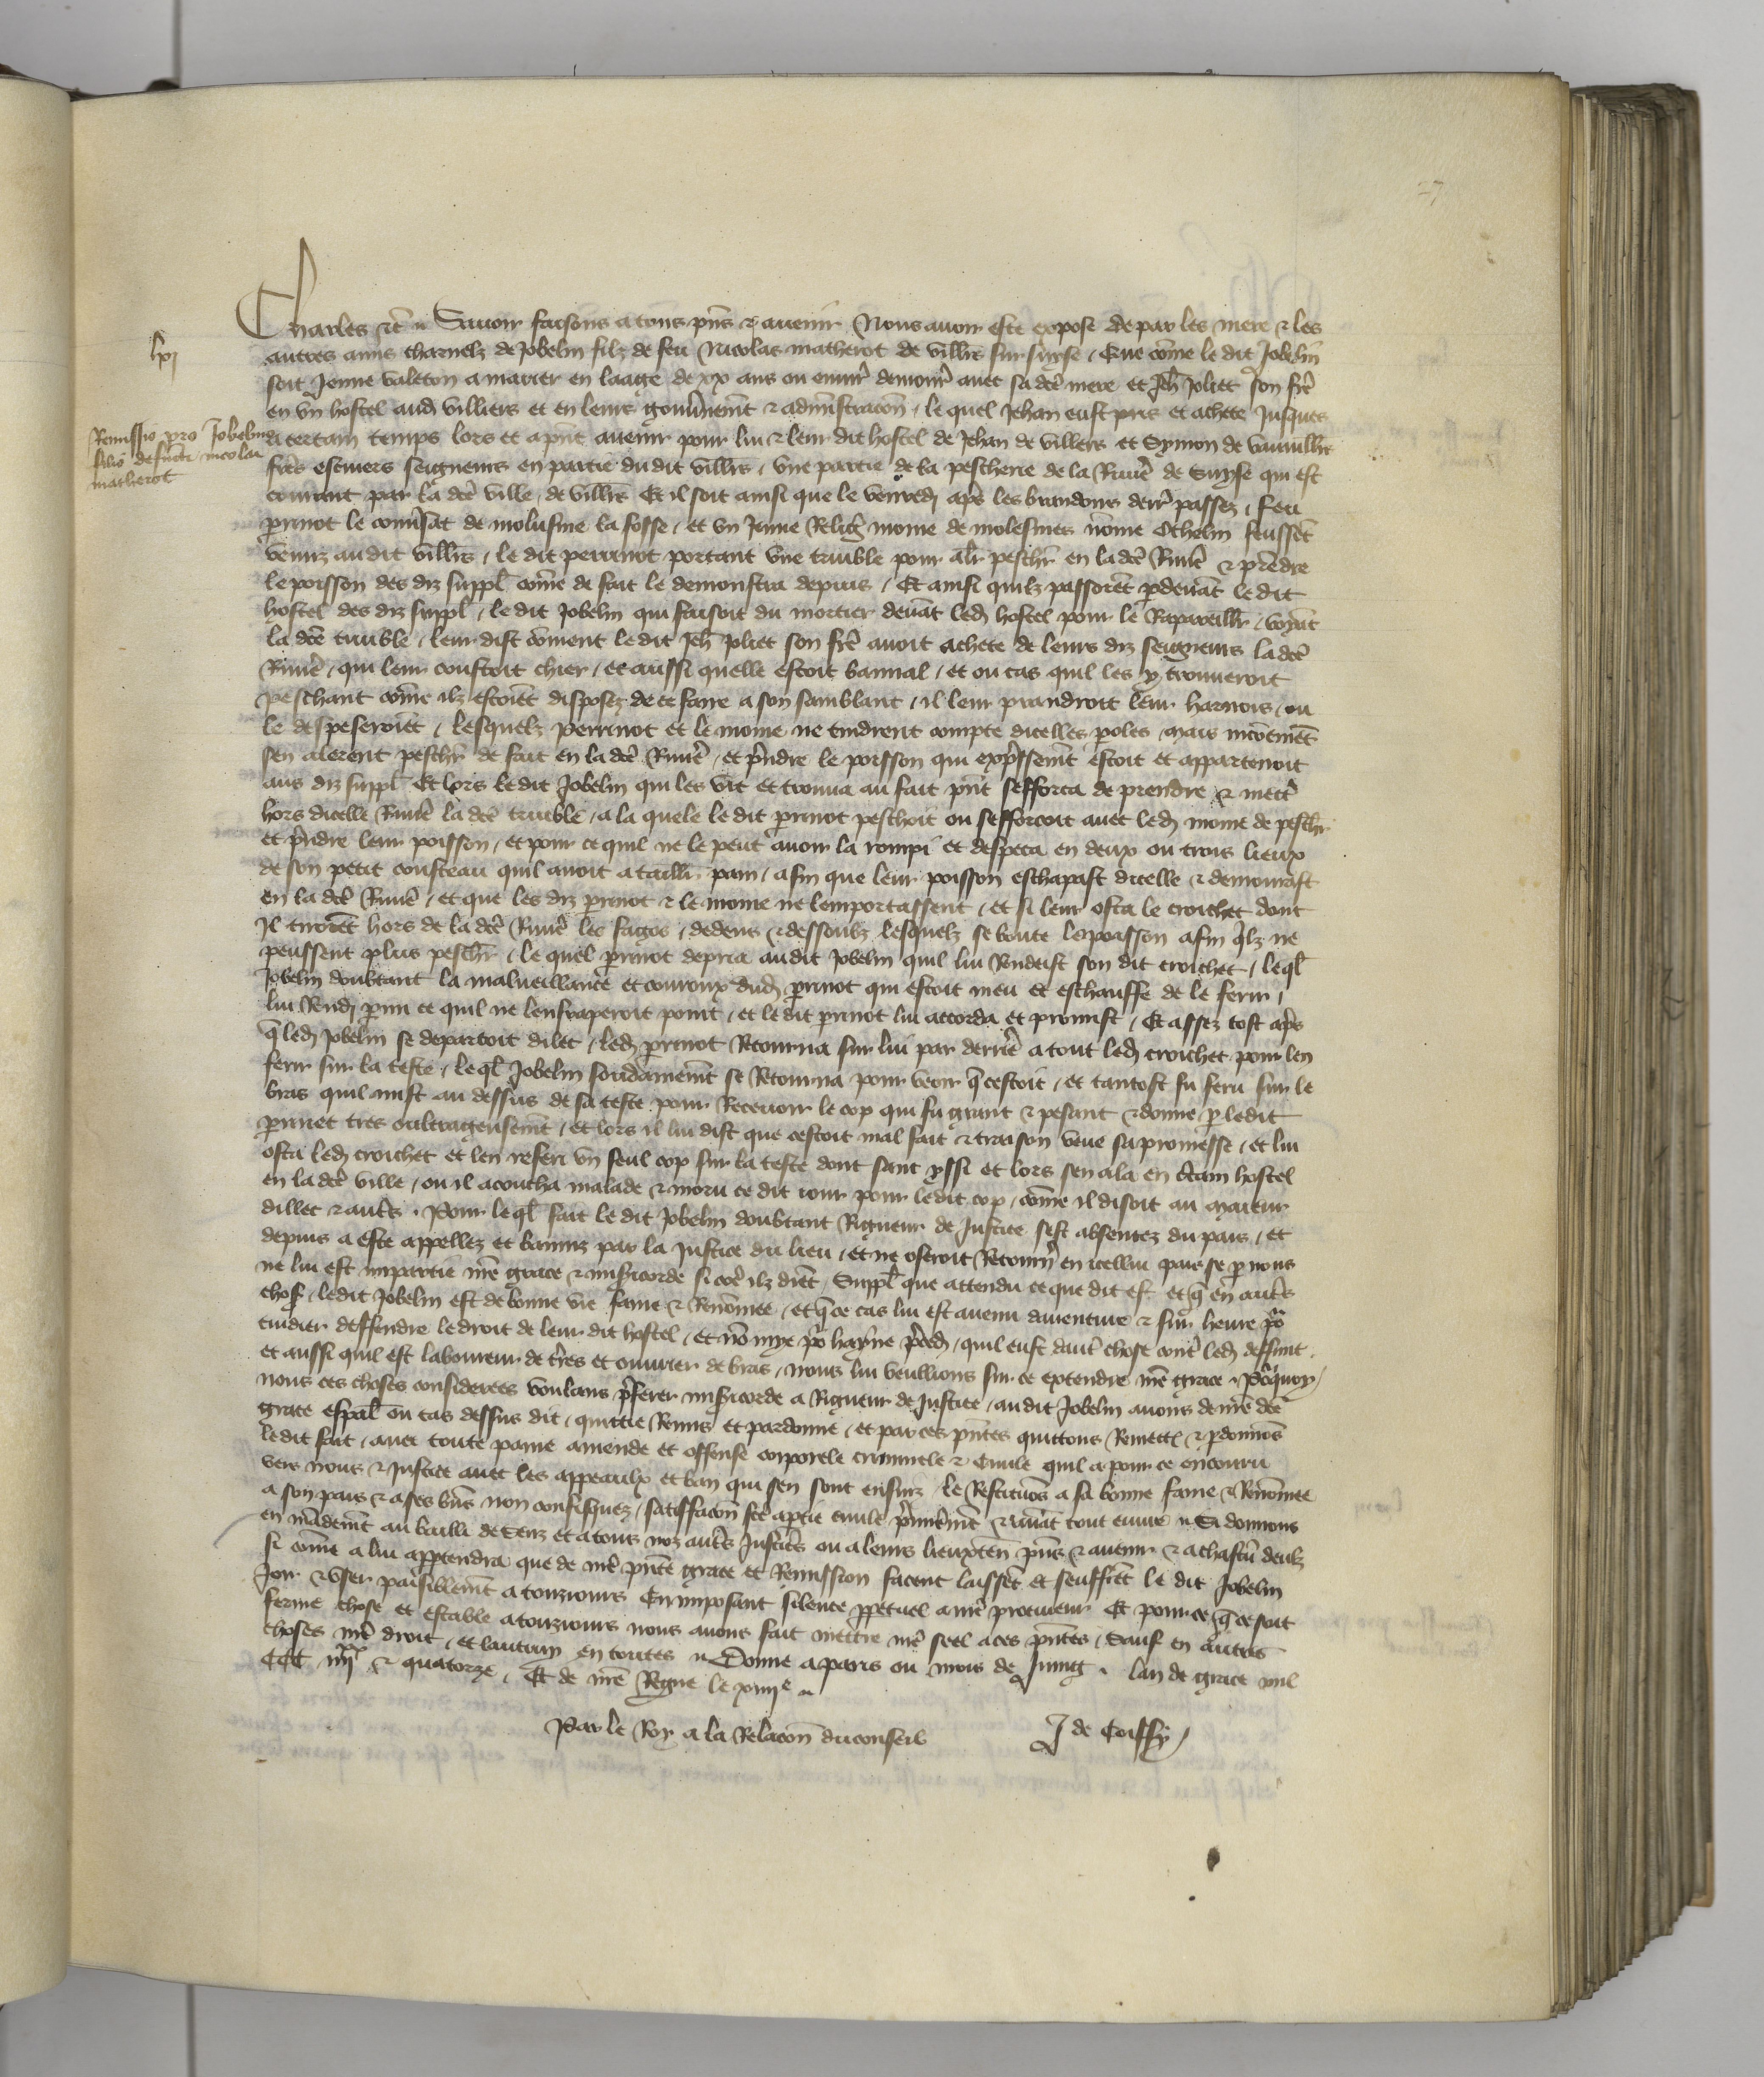 27
Charles etc. Savoir faisons a tous pñs & avenir Nous avoir este expose de par les mere & les
lxj
autres amis charnelz de Jobelin filz de feu Nicolas matherot de villrs sur suyse / Que cõme le dit Jobelin
soit Jeune valeton a marier en laage de xx ans ou envir demour avec sa dce mere et Jeh Joliet son frẽ
en vn hostel aud villiers et en leurs gouvnemt & adminstracõn / le quel Jehan eust pris et achete Jusques
Remissio pro Jobelino
filio defuncti nicolai
matherot
a certain temps lors et apñt avenir pour lui & leur dit hostel de Jehan de villers et Symon de
frẽs escuiers seigneurs en partie du dit villrs / vne partie de la pescherie de la Riviẽ de Suyse qui est
courant par la dcẽ ville de villrs Et il soit ainsi que le venredi apẽs les brandons derr passez / feu
prinot le de molusme la fosse / et vn Jeune Religẽ moine de molesmes nõme Othelin feussẽt
venuz audit villrs / le dit perrinot portant vne truible pour alr peschr en la dcẽ Rivẽ & prẽdre
le poisson des diz suppl cõme de fait le demonstra depuis / Et ainsi quilz passorẽt pdevãt le dit
hostel des diz suppl / le dit Jobelin qui faisoit du mortier devãt led hostel pour le Rapareillr / voyãt
la dcẽ truible / leur dist cõment le dit Jeh Joliet son frẽ avoit achete de leurs diz seigneurs la dcẽ
Rivẽ / qui leur coustoit chier / et aussi quelle estoit bannal / et ou cas quil les y trouveroit
peschant cõme ilz estoiẽt disposez de ce faire a son samblant / il leur prandroit leur harnois / ou
le despeseroiẽt / lesquelz Perrinot et le moine ne tindrent compte dicelles poles / mais incõtinẽt
sen alerent peschr de fait en la dcẽ Rivẽ / et pndre le poisson qui expssemt estoit et appartenoit
aus diz suppl Et lors le dit Jobelin qui les vit et trouva au fait pñt sefforca de prendre & mectr
hors dicelle Rivẽ la dcẽ truible / a la quele le dit prinot peschoit ou sefforcoit avec led moine de peschr
et pndre leur poisson / et pour ce quil ne le peut avoir la rompi et despeca en deux ou trois lieux
de son petit cousteau quil avoit a taillr pain / afin que leur poisson eschapast dicelle & demourast
en la dcẽ Rivẽ / et que les diz prinot & le moine ne lemportassent / et si leur osta le croichet dont
Il tirorẽt hors de la dcẽ Rivẽ les fagos / dedens & dessoubz lesquelz se boute le poisson afin qlz ne
peussent plus peschr / le quel prinot depria audit Jobelin quil lui Rendist son dit croichet / leql
Jobelin doubtant la malveillance et courroux dud prinot qui estoit meu et eschauffe de le ferir /
lui Rendi pmi ce quil ne len fraperoit point / et le dit prinot lui accorda et promist / Et assez tost apẽs
q led Jobelin se departoit dilec / led prinot Retourna sur lui par derriẽ a tout led croichet pour len
ferir sur la teste / leql Jobelin soudainemt se Retourna pour veoir q cestoit / et tantost fu feru sur le
bras quil mist au dessus de sa teste pour Recevoir le cop qui fu grant & pesant & donne p ledit
prinet tres oultrageusemt / et lors il lui dist que cestoit mal fait & traison veue sa promesse / et lui
osta led croichet et len referi vn seul cop sur la teste dont sanc yssi et lors sen ala en ctain hostel
en la dcẽ ville / ou il acoucha malade & moru ce dit iour pour ledit cop / cõme il disoit au maieur
dillec & autrs / Pour leql fait le dit Jobelin doubtant Rigueur de Justice sest absentez du pais / et
depuis a este appellez et banniz par la Justice du lieu / et ne oseroit Retournr en icellui pais se p nous
ne lui est impartie nrẽ grace & misicorde si cõe ilz diẽt / Suppl que attendu ce que dit est et q en autrs
chos / ledit Jobelin est de bonne vie fame & Renõmee / et q ce cas lui est avenu daventure & sur heure po
cuidier deffendre le droit de leur dit hostel / et nõ mye po hayne pced / quil eust dautr chose contr led deffunt
et aussi quil est laboureur de trres et ouvrier de bras / nous lui vueillions sur ce extendre nrẽ grace / Poquoy
nous ces choses considerees voulans pferer misicorde a Rigueur de Justice / audit Jobelin avons de nrẽ dcẽ
grace espal ou cas dessus dit / quictie Remis et pardonne / et par ces pñtes quittons Remectõs & pdonnõs
le dit fait / avec toute paine amende et offense corporele criminele & Civile quil a pour ce encouru
vers nous & Justice avec les appeaulx et ban qui sen sont ensuiz / le Restituõs a sa bonne fame & Renõmee
a son pais & a ses biẽs non confisquez / satisfacõn fcẽ a ptie civile pmieremt & avãt tout euvre Si donnons
en mãdemt au bailli de Senz et a tous noz autrs Justicrs ou a leurs lieuxten pñs & avenir & a chascũ deulz
si cõme a lui apptendra que de nrẽ pñte grace et Remission facent laissẽt et seuffrẽt le dit Jobelin
Joir & vser paisiblemt a tousiours En imposant silence ppetuel a nrẽ procureur Et pour ce q ce soit
ferme chose et estable a tousiours nous avons fait mettre nrẽ seel a ces pñtes / Sauf en autres
choses nrẽ droit / et lautruy en toutes Donne a paris ou mois de Juing / lan de grace mil
CCC iiijxx & quatorze / Et de nrẽ Regne le xiiije
Par le Roy a la Relacõn du conseil J de Coiffy